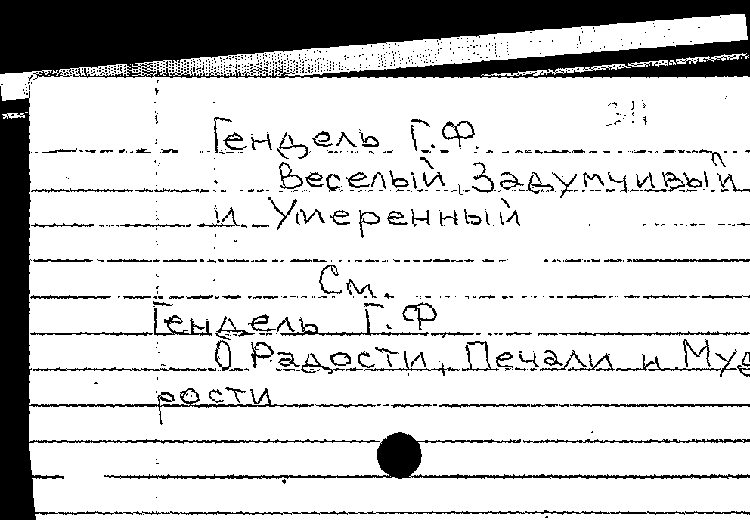 Гендель Г.Ф.
Веселый, Задумчивый
и Умеренный
См.
Гендель Г.Ф.
О Радости, Печали и Муд
рости